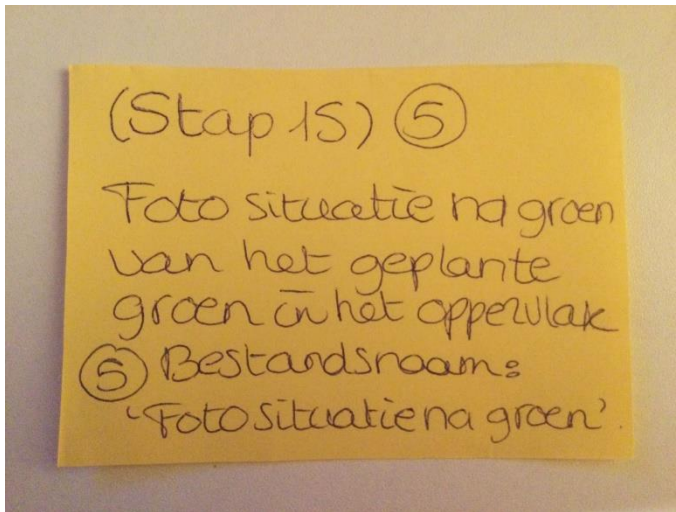 (Stap 15) ⑤
Foto situatie na groen
van het geplante
groen in het oppervlak
⑤ Bestandsnaam:
'Foto situatie na groen'.